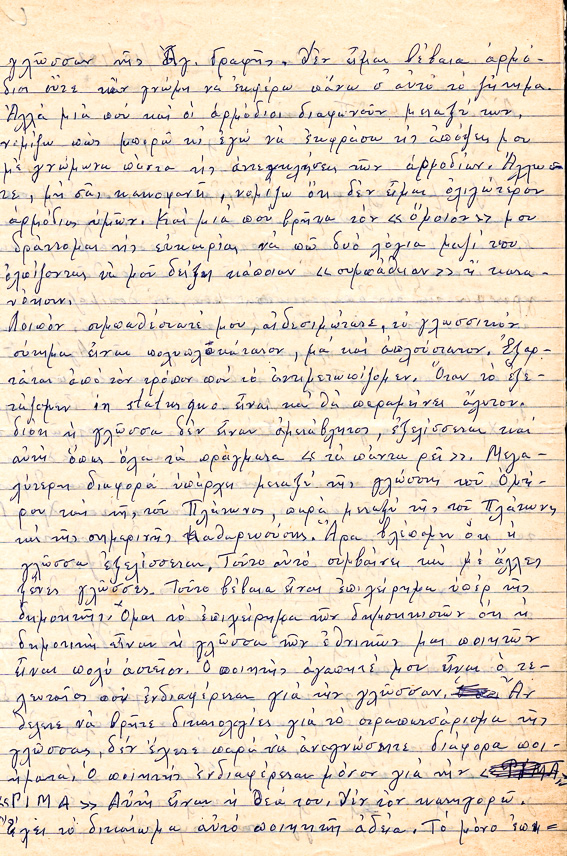 γλῶσσαν τῆς Ἁγ. Γραφῆς. Δέν εἶμαι βέβαια ἁρμό-
διος οὔτε κἄν γνώμη νά ἐκφέρω πάνω σ' αὐτό τό ζήτημα.
Ἀλλά μιά πού καί οἱ ἁρμόδιοι διαφωνοῦν μεταξύ των,
νομίζω πώς μπορῶ κι' ἐγώ νά ἐκφράσω τίς ἀπόψεις μου
μέ γνώμωνα πάντα τίς ἀντεγκλήσεις τῶν ἁρμοδίων. Ἄλλωσ-
τε, μή σᾶς κακοφανῆ, νομίζω ὅτι δέν εἶμαι ὀλιγώτερον
ἁρμόδιος ὑμῶν. Καί μιά πού βρῆκα τόν «ὅμοιον» μου
δράττομαι τῆς εὐκαιρίας νά πῶ δυό λόγια μαζί του
ἐλπίζοντας νά μοῦ δείξῃ κάποιαν «συμπάθειαν» ἤ κατα-
νόησιν.
Λοιπόν συμπαθέστατέ μου, αἰδεσιμώτατε, τό γλωσσικόν
ζήτημα εἶναι πολυπλοκώτατον, μά καί ἁπλούστατον. Ἐξαρ-
τᾶται ἀπό τόν τρόπον πού τό ἀντιμετωπίζομεν. Ὅταν τό ἐξε-
τάζομεν in status quo εἶναι καί θά παραμείνει ἄλυτον.
διότι ἡ γλῶσσα δέν εἶναι ἀμετάβλητος, ἐξελίσσεται καί
αὐτή ὅπως ὅλα τά πράγματα «τά πάντα ρεῖ». Μεγα-
λυτέρη διαφορά ὑπάρχει μεταξύ τῆς γλώσσης τοῦ Ὁμή-
ρου καί τῆς τοῦ Πλάτωνος, παρά μεταξύ τῆς τοῦ Πλάτωνος
καί τῆς σημερινῆς καθαρευούσης. Ἄρα βλέπομεν ὅτι ἡ
γλῶσσα ἐξελίσσεται. Τοῦτο αὐτό συμβαίνει καί μέ ἄλλες
ξένες γλῶσσες. Τοῦτο βέβαια εἶναι ἐπιχείρημα ὑπέρ τῆς
δημοτικῆς. Ὅμως τό ἐπιχείρημα τῶν δημοτικιστῶν ὅτι ἡ
δημοτική εἶναι ἡ γλῶσσα τῶν ἐθνικῶν μας ποιητῶν
εἶναι πολύ ἀστεῖον. Ὁ ποιητής ἀγαπητέ μου εἶναι ὁ τε-
λευταῖος πού ἐνδιαφέρεται γιά τήν γλῶσσαν. Ἄν
θέλετε νά βρῆτε δικαιολογίες γιά τό στραπατσάρισμα τῆς
γλώσσας, δέν ἔχετε παρά νά ἀναγνώσετε διάφορα ποι-
ήματα. Ὁ ποιητής ἐνδιαφέρεται μόνον γιά τήν
«ΡΙΜΑ» Αὐτή εἶναι ἡ θεά του. Δέν τόν κατηγορῶ.
Ἔχει τό δικαίωμα αὐτό ποιητικῇ ἀδείᾳ. Τό μόνο